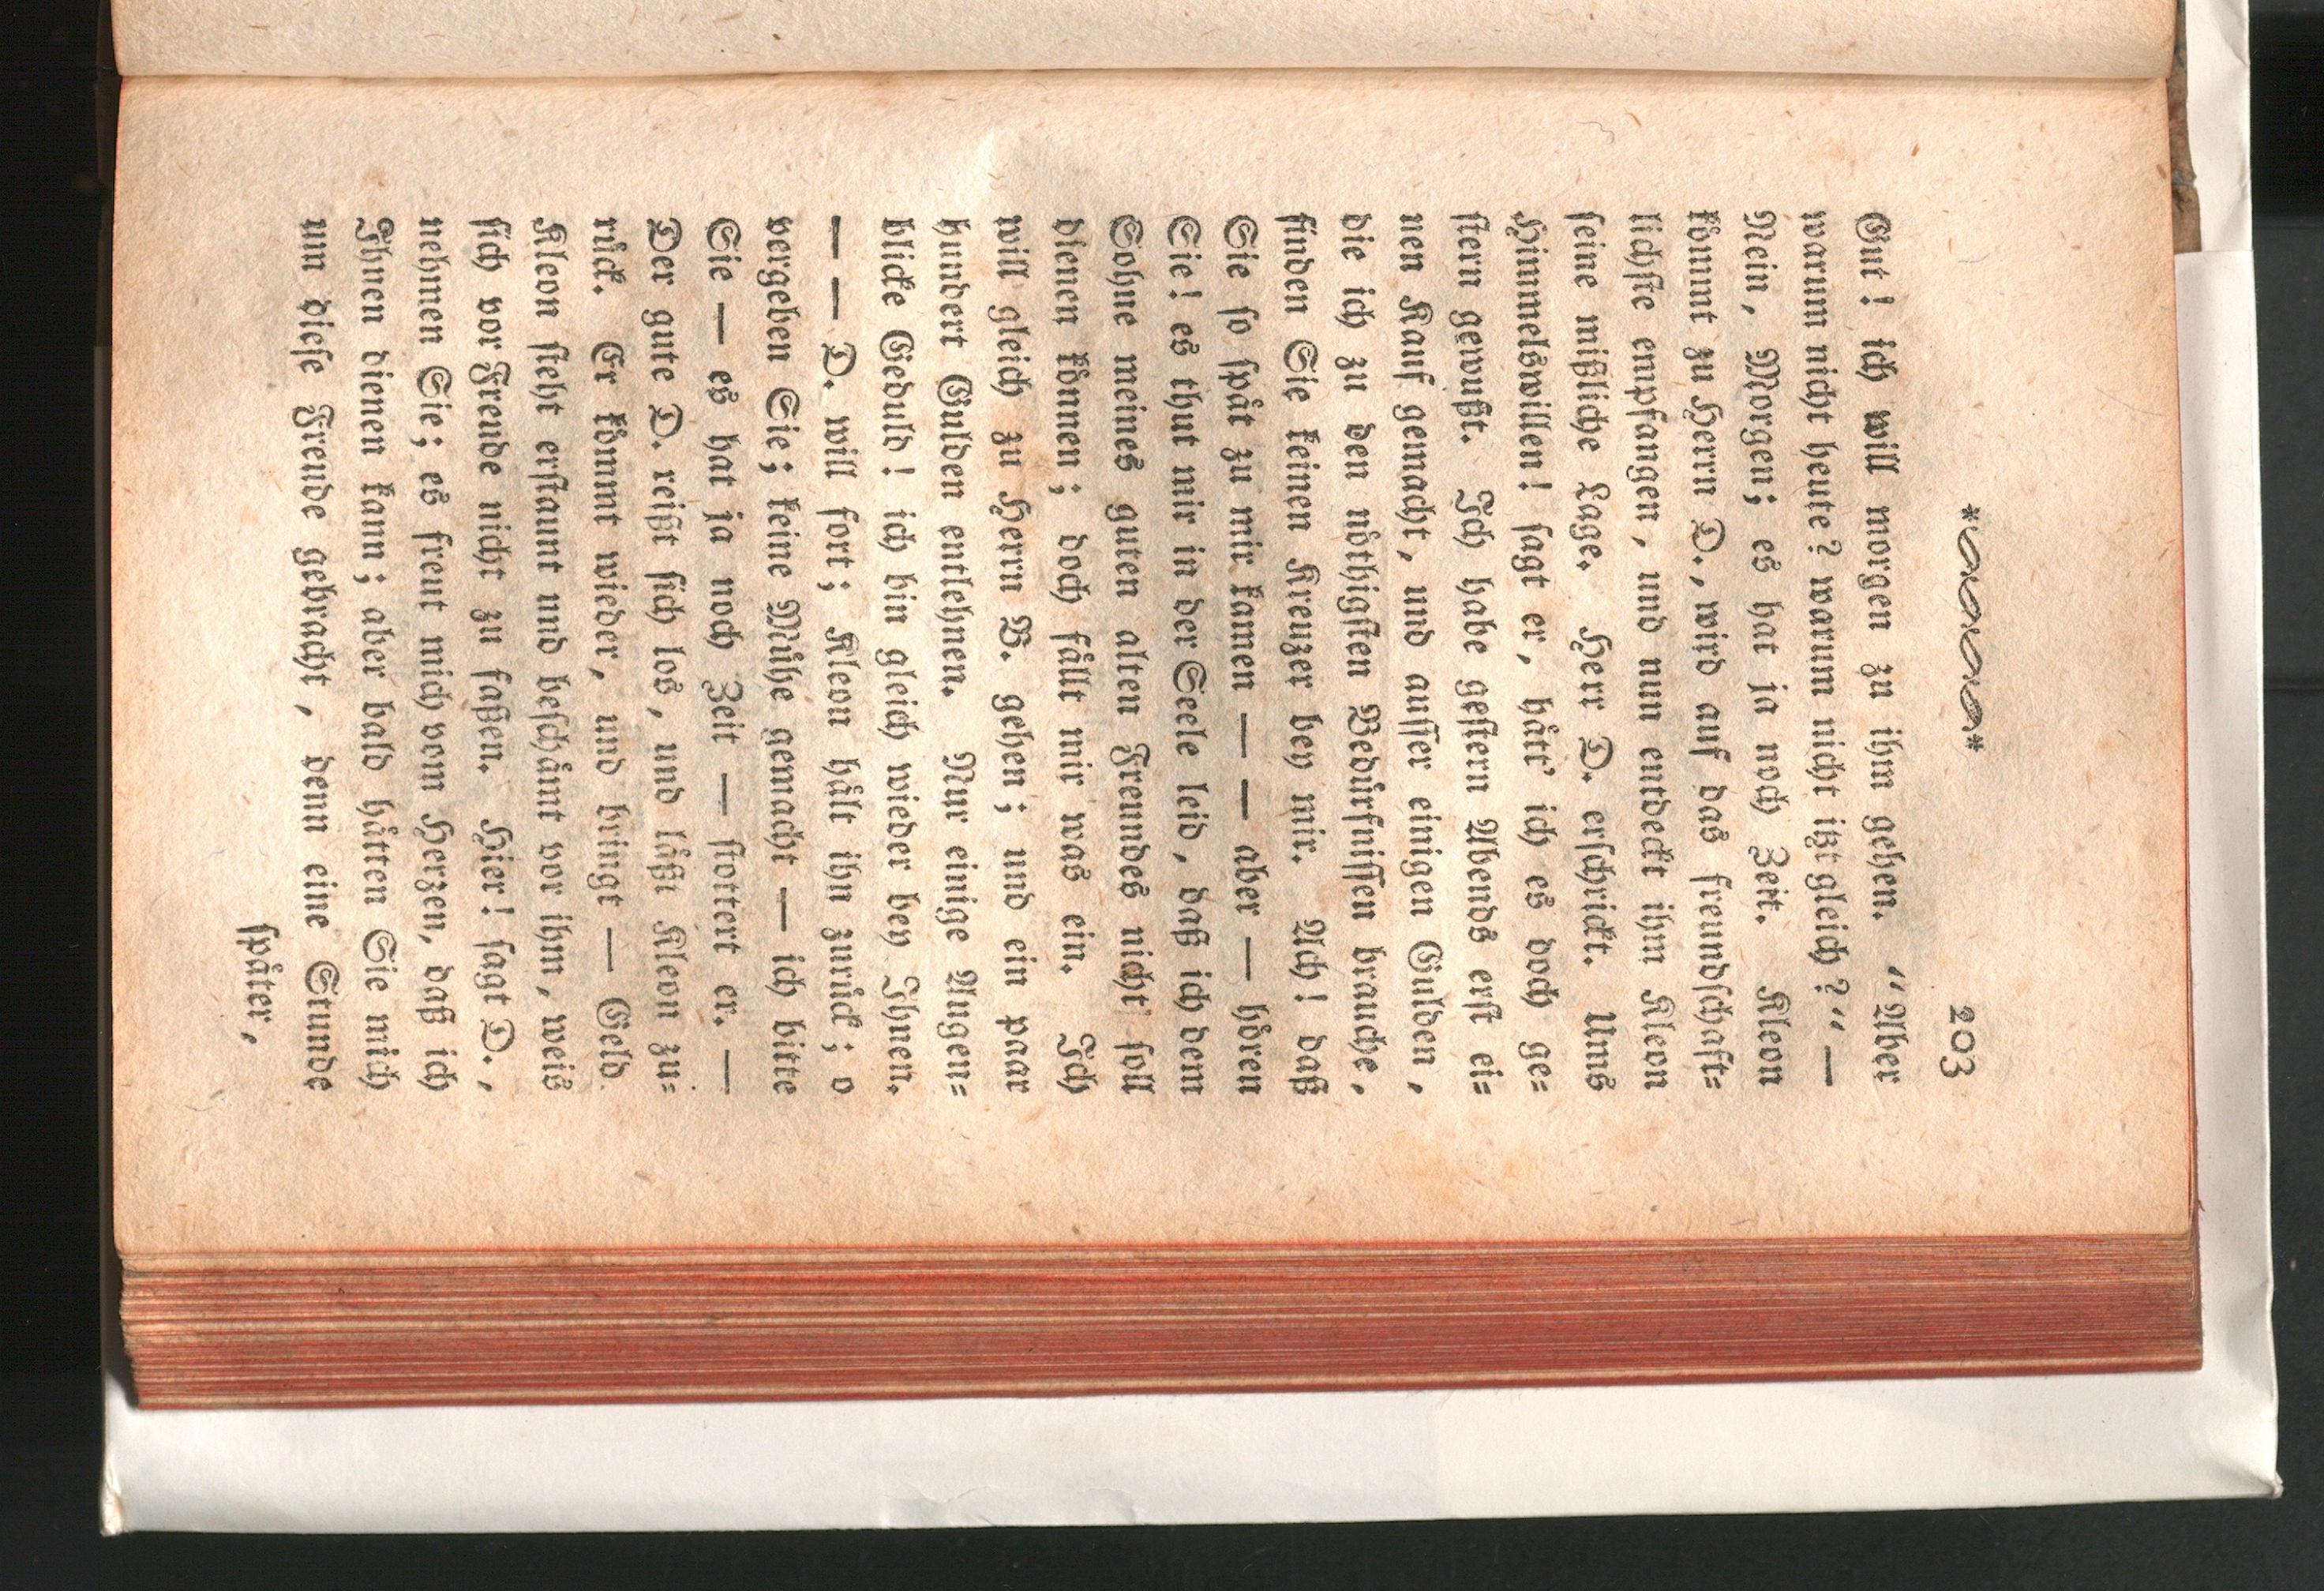 *~~~~~* 203
Gut! ich will morgen zu ihm gehen. “Aber
warum nicht heute? warum nicht itzt gleich?” —
Nein, Morgen; es hat ja noch Zeit. Kleon
kömmt zu Herrn D., wird auf das freundschaft=
lichste empfangen, und nun entdeckt ihm Kleon
seine mißliche Lage. Herr D. erschrickt. Ums
Himmelswillen! sagt er, hätt’ ich es doch ge=
stern gewußt. Ich habe gestern Abends erst ei=
nen Kauf gemacht, und ausser einigen Gulden,
die ich zu den nöthigsten Bedürfnissen brauche,
finden Sie keinen Kreuzer bey mir. Ach! daß
Sie so spät zu mir kamen — — aber — hören
Sie! es thut mir in der Seele leid, daß ich dem
Sohne meines guten alten Freundes nicht soll
dienen können; doch fällt mir was ein. Ich
will gleich zu Herrn B. gehen; und ein paar
hundert Gulden entlehnen. Nur einige Augen=
blicke Geduld! ich bin gleich wieder bey Ihnen.
— — D. will fort; Kleon hält ihn zurück; o
vergeben Sie; keine Mühe gemacht — ich bitte
Sie — es hat ja noch Zeit — stottert er. —
Der gute D. reißt sich los, und läßt Kleon zu=
rück. Er kömmt wieder, und bringt — Geld.
Kleon steht erstaunt und beschämt vor ihm, weis
sich vor Freude nicht zu faßen. Hier! sagt D.,
nehmen Sie; es freut mich vom Herzen, daß ich
Ihnen dienen kann; aber bald hätten Sie mich
um diese Freude gebracht, denn eine Stunde
später,